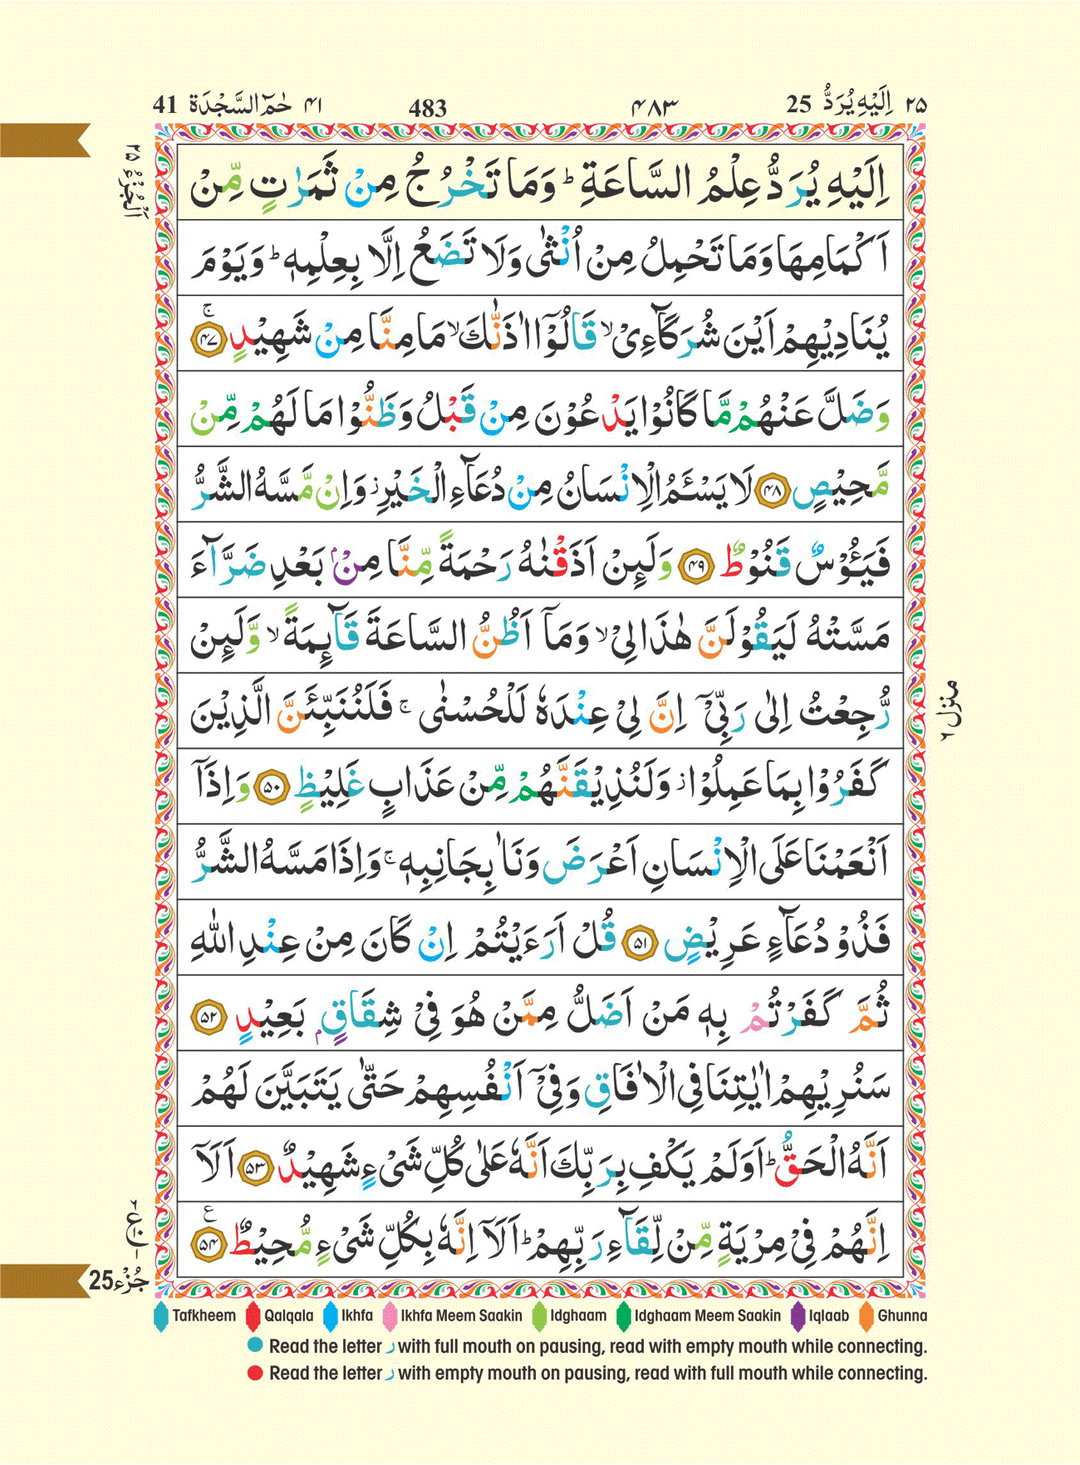 ۲۵ اِلَيْهِ يُرَدُّ 25 ۴۸۳ 483 ۴۱ حٰمٓ السَّجْدَة 41
اَلْجُزْءُ ۲۵
اِلَيْهِ يُرَدُّ عِلْمُ السَّاعَةِ ؕ وَمَا تَخْرُجُ مِنْ ثَمَرٰتٍ مِّنْ
اَكْمَامِهَا وَمَا تَحْمِلُ مِنْ اُنْثٰى وَلَا تَضَعُ اِلَّا بِعِلْمِهٖ ؕ وَيَوْمَ
يُنَادِيْهِمْ اَيْنَ شُرَكَآءِىْ ۙ قَالُوْۤا اٰذَنّٰكَ ۙ مَا مِنَّا مِنْ شَهِيْدٍ ۚ ۴۷
وَضَلَّ عَنْهُمْ مَّا كَانُوْا يَدْعُوْنَ مِنْ قَبْلُ وَظَنُّوْا مَا لَهُمْ مِّنْ
مَّحِيْصٍ ۴۸ لَا يَسْـَٔمُ الْاِنْسَانُ مِنْ دُعَآءِ الْخَيْرِ ز وَاِنْ مَّسَّهُ الشَّرُّ
فَيَـُٔوْسٌ قَنُوْطٌ ۴۹ وَلَىِٕنْ اَذَقْنٰهُ رَحْمَةً مِّنَّا مِنْۢ بَعْدِ ضَرَّآءَ
مَسَّتْهُ لَيَقُوْلَنَّ هٰذَا لِىْ ۙ وَمَاۤ اَظُنُّ السَّاعَةَ قَآىِٕمَةً ۙ وَّلَىِٕنْ
رُّجِعْتُ اِلٰى رَبِّىْۤ اِنَّ لِىْ عِنْدَهٗ لَلْحُسْنٰى ۚ فَلَنُنَبِّئَنَّ الَّذِيْنَ
كَفَرُوْا بِمَا عَمِلُوْا ز وَلَنُذِيْقَنَّهُمْ مِّنْ عَذَابٍ غَلِيْظٍ ۵۰ وَاِذَاۤ
اَنْعَمْنَا عَلَى الْاِنْسَانِ اَعْرَضَ وَنَاٰ بِجَانِبِهٖ ۚ وَاِذَا مَسَّهُ الشَّرُّ
فَذُوْ دُعَآءٍ عَرِيْضٍ ۵۱ قُلْ اَرَءَيْتُمْ اِنْ كَانَ مِنْ عِنْدِ اللّٰهِ
ثُمَّ كَفَرْتُمْ بِهٖ مَنْ اَضَلُّ مِمَّنْ هُوَ فِىْ شِقَاقٍۭ بَعِيْدٍ ۵۲
سَنُرِيْهِمْ اٰيٰتِنَا فِى الْاٰفَاقِ وَفِىْۤ اَنْفُسِهِمْ حَتّٰى يَتَبَيَّنَ لَهُمْ
اَنَّهُ الْحَقُّ ؕ اَوَلَمْ يَكْفِ بِرَبِّكَ اَنَّهٗ عَلٰى كُلِّ شَىْءٍ شَهِيْدٌ ۵۳ اَلَاۤ
اِنَّهُمْ فِىْ مِرْيَةٍ مِّنْ لِّقَآءِ رَبِّهِمْ ؕ اَلَاۤ اِنَّهٗ بِكُلِّ شَىْءٍ مُّحِيْطٌ ۵۴ ع
منزل ۶
جُزْء 25
Tafkheem Qalqala Ikhfa Ikhfa Meem Saakin Idghaam Idghaam Meem Saakin Iqlaab Ghunna
Read the letter ر with full mouth on pausing, read with empty mouth while connecting.
Read the letter ر with empty mouth on pausing, read with full mouth while connecting.